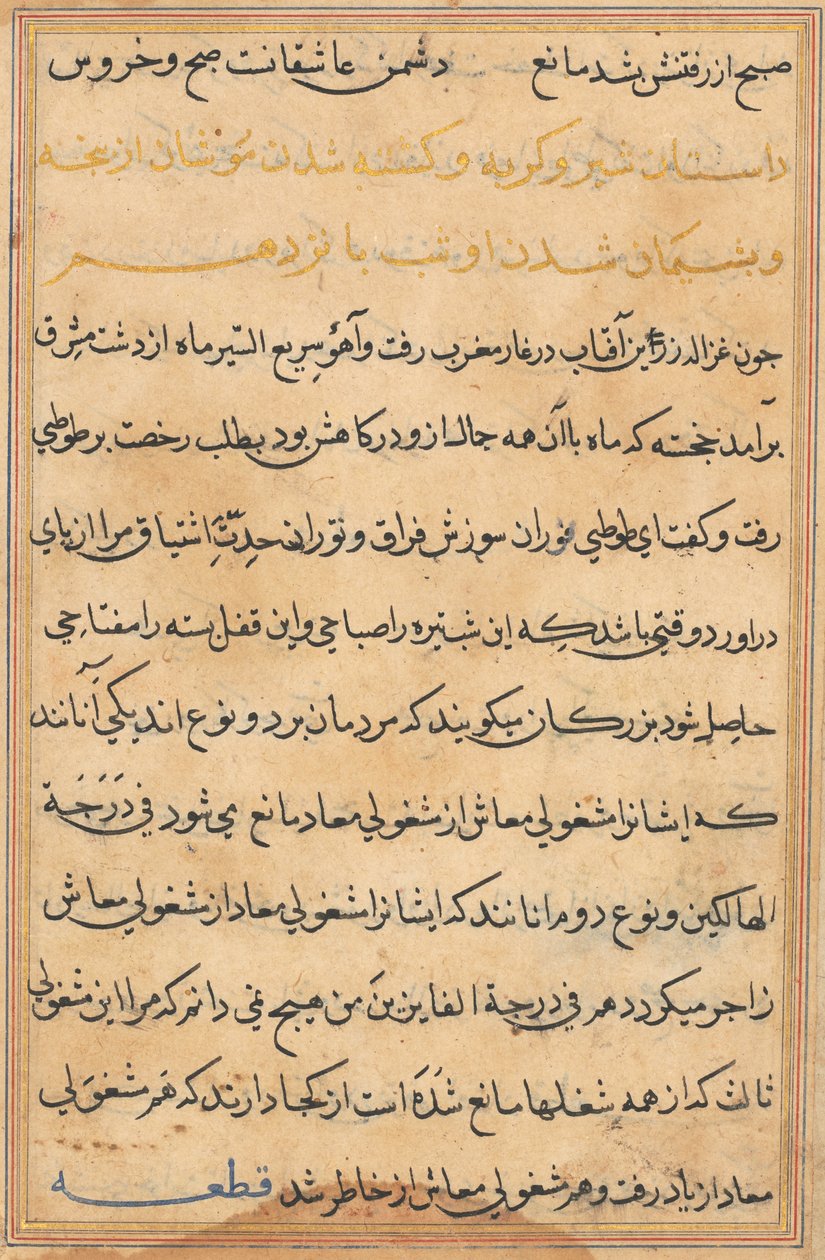 صبح از رفتنش بشد مانع دشمن عاشقانست صبح و خروس
داستان شیر و کربه و کشته شدن موشان از بچه
و بشیمان شدن او شب بانزدهم
جون غزاله زرین آفتاب در غار مغرب رفت و آهو سریع السّیر ماه از دشت مشرق
برآمد خجسته که ماه با آن همه جمال ازو در کاهش بود بطلب رخصت بر طوطی
رفت و کفت ای طوطی فوران سوزش فراق و نوران حدّت اشتیاق مرا از بای
در اورد وقتی باشد که این شب تیره را صباحی و این قفل بسته را مفتاحی
حاصل شود بزرکان میکویند که مردمان بر دو نوع اند یکی آنانند
که ایشانرا مشغولی معاش از مشغولی معاد مانع می شود فی دَرَجَة
الهالکین و نوع دوم انانند که ایشانرا مشغولی معاد از مشغولی معاش
زاجر میکردد هم فی درجة الفایزین من هیچ نمی دانم که مرا این مشغولی
ثالث که از همه شغلها مانع شده است از کجا دارند که هم مشغولی
معاد از یاد رفت و هم مشغولی معاش از خاطر شد قطعه